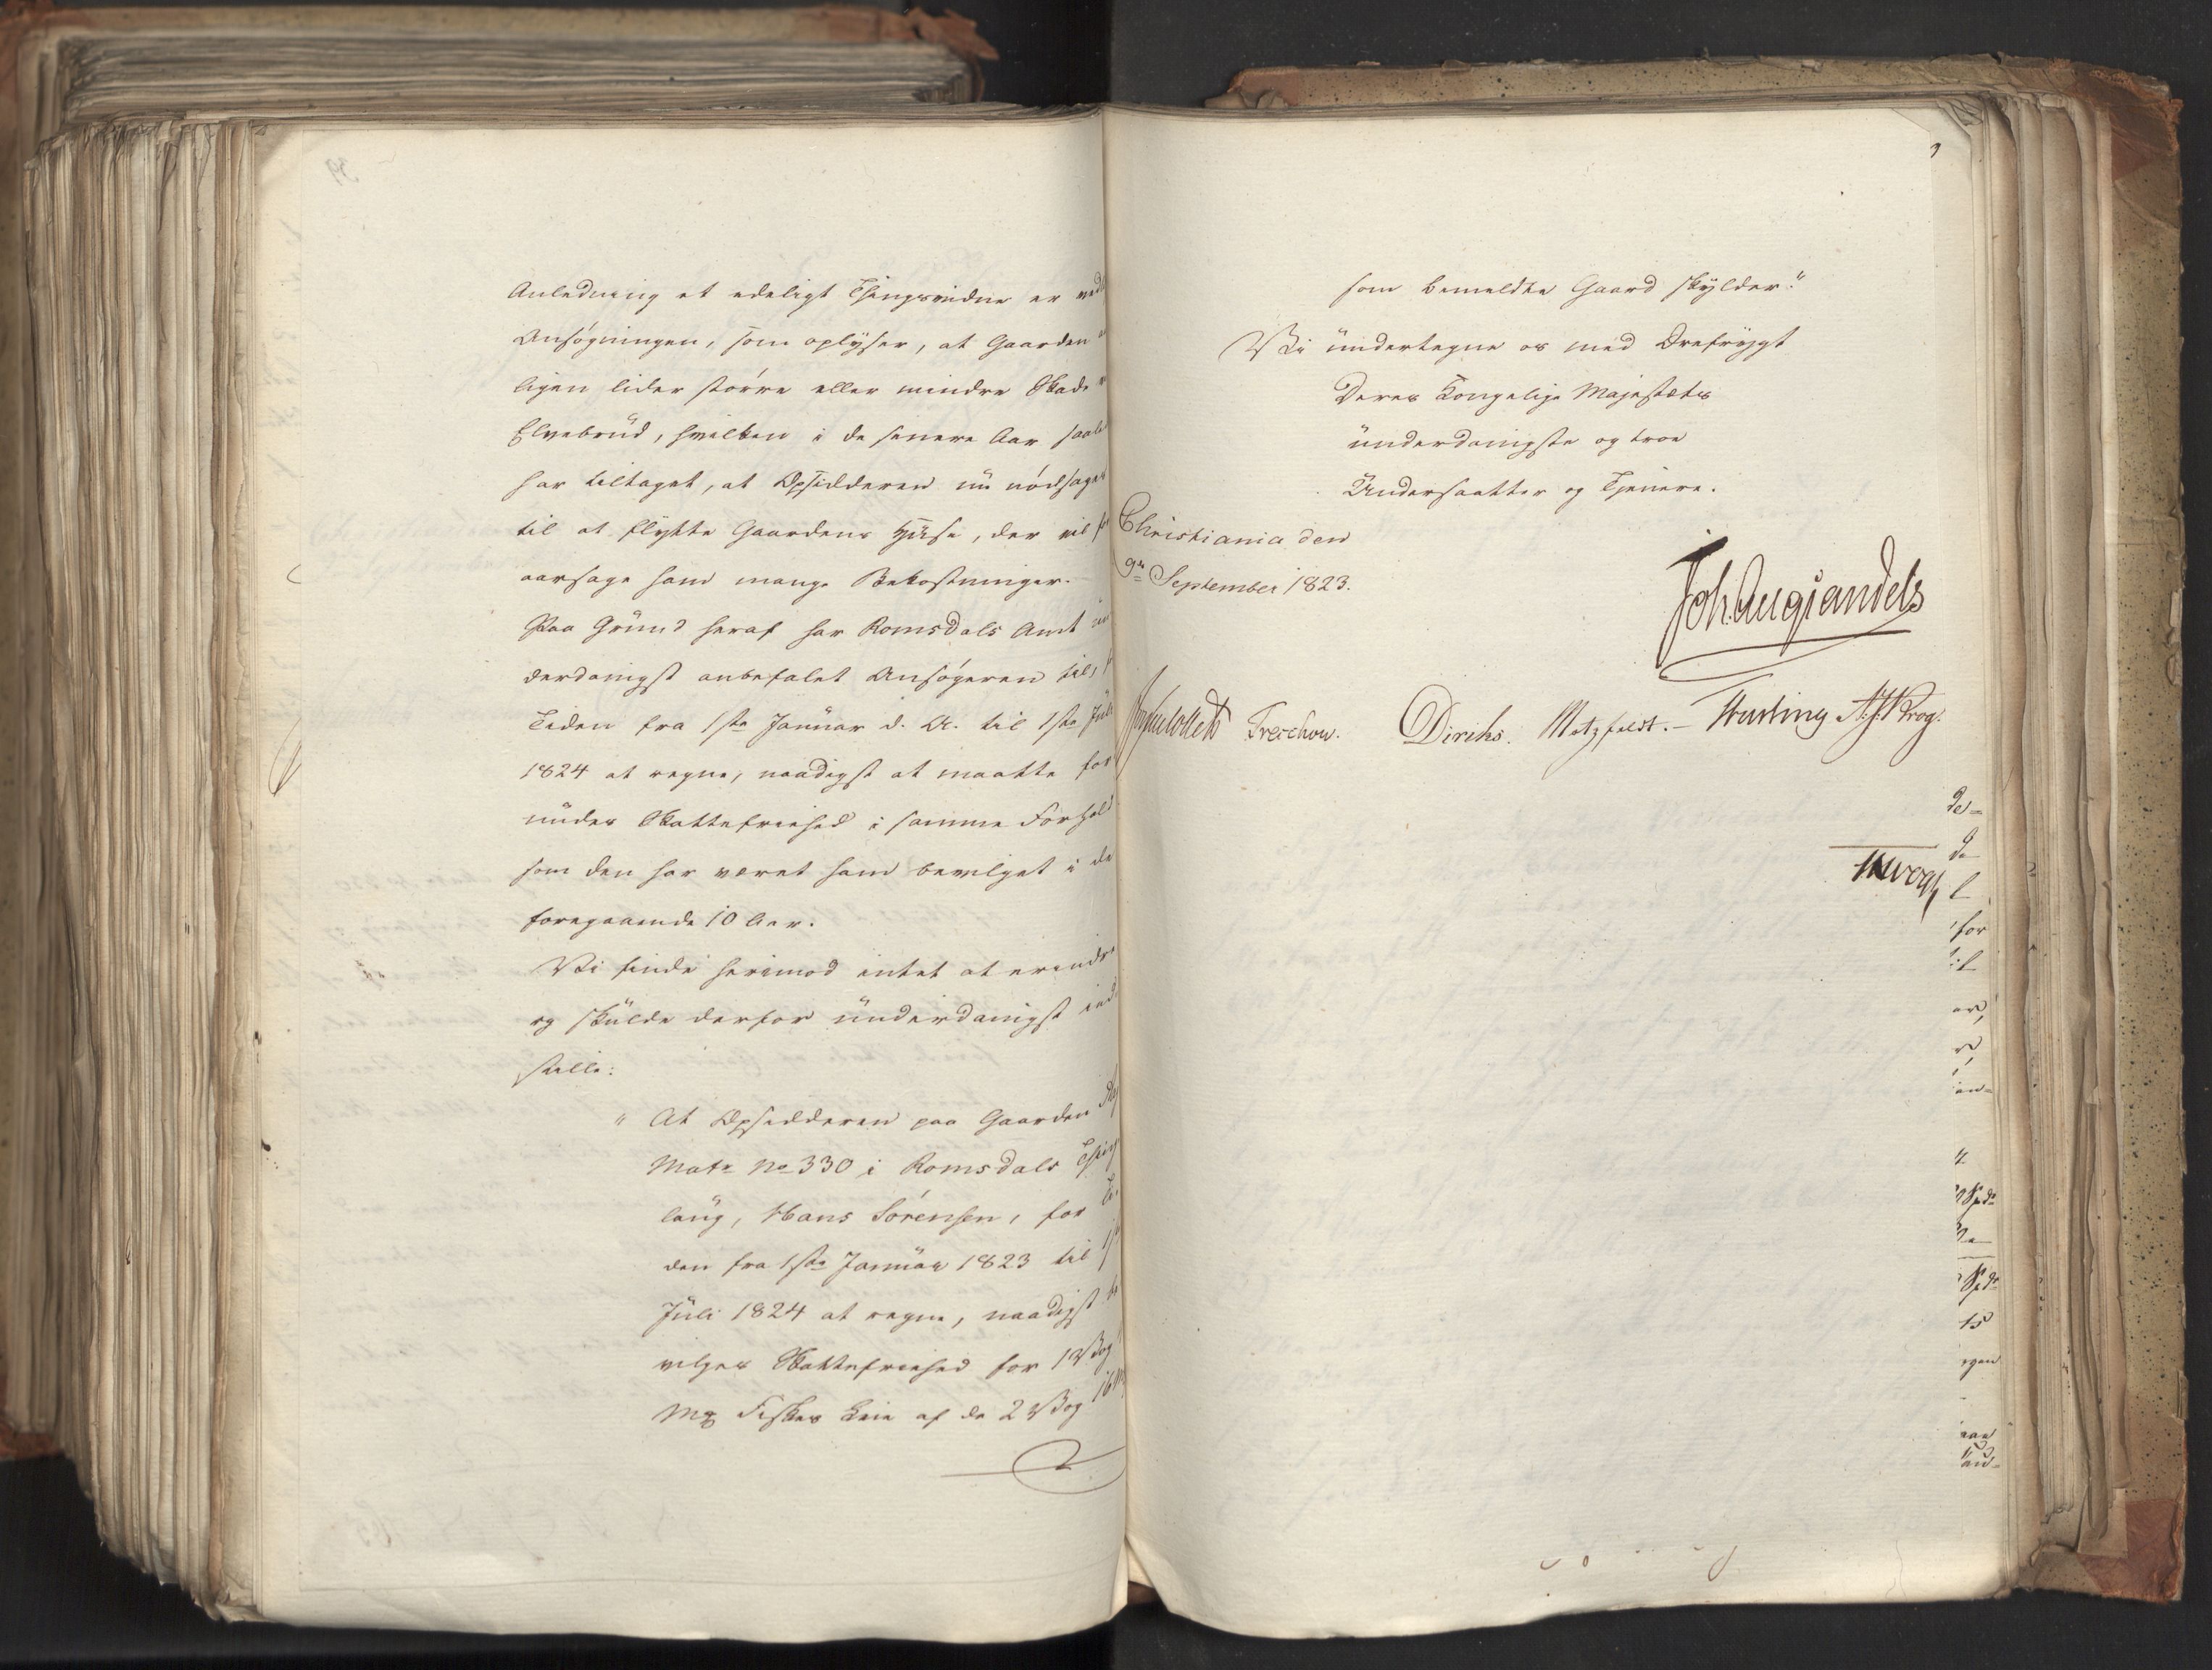 Anledning et edeligt Thingsvidne er ved
Ansøgningen, som oplyser, at Gaarden
ligen lider større eller mindre Skade
Elvebrud, hvilken i de senere Aar saale
har tiltaget, at Opsidderen nu nødsages
til at flytte Gaardens Huse, der vil for
aarsage ham mange Bekostninger.
Paa Grund heraf har Romsdals Amt un
derdanigst anbefalet Ansøgeren til,
Tiden fra 1ste Januar d. A. til 1ste Juli
1824 at regne, naadigst at maatte for
undes Skattefriehed i samme Forhold
som den har været ham bevilget i de
foregaaende 10 Aar.
Vi finde herimod intet at erindre
og skulde derfor underdanigst ind
stille:
" At Opsidderen paa Gaarden
Matr No 330 i Romsdals Thing
laug, Hans Sørensen, for Ti
den fra 1ste Januar 1823 til 1ste
Juli 1824 at regne, naadigst be
vilges Skattefriehed for 1 Vog
Mk Fiskes Leie af de 2 Vog 16
som bemeldte Gaard skylder."
Vi undertegne os med Ærefrygt
Deres Kongelige Majestæts
underdanigste og troe
Undersaatter og Tjenere.
Christiania den
9de September 1823.
Joh. Aug. Sandels
Jonas Collett Treschow. Diriks. Motzfeldt. Fasting A. J. Krog.
de-
de
l
for
til
er,
r,
en-
4
Spd
Spd
15
egen
paa
un-